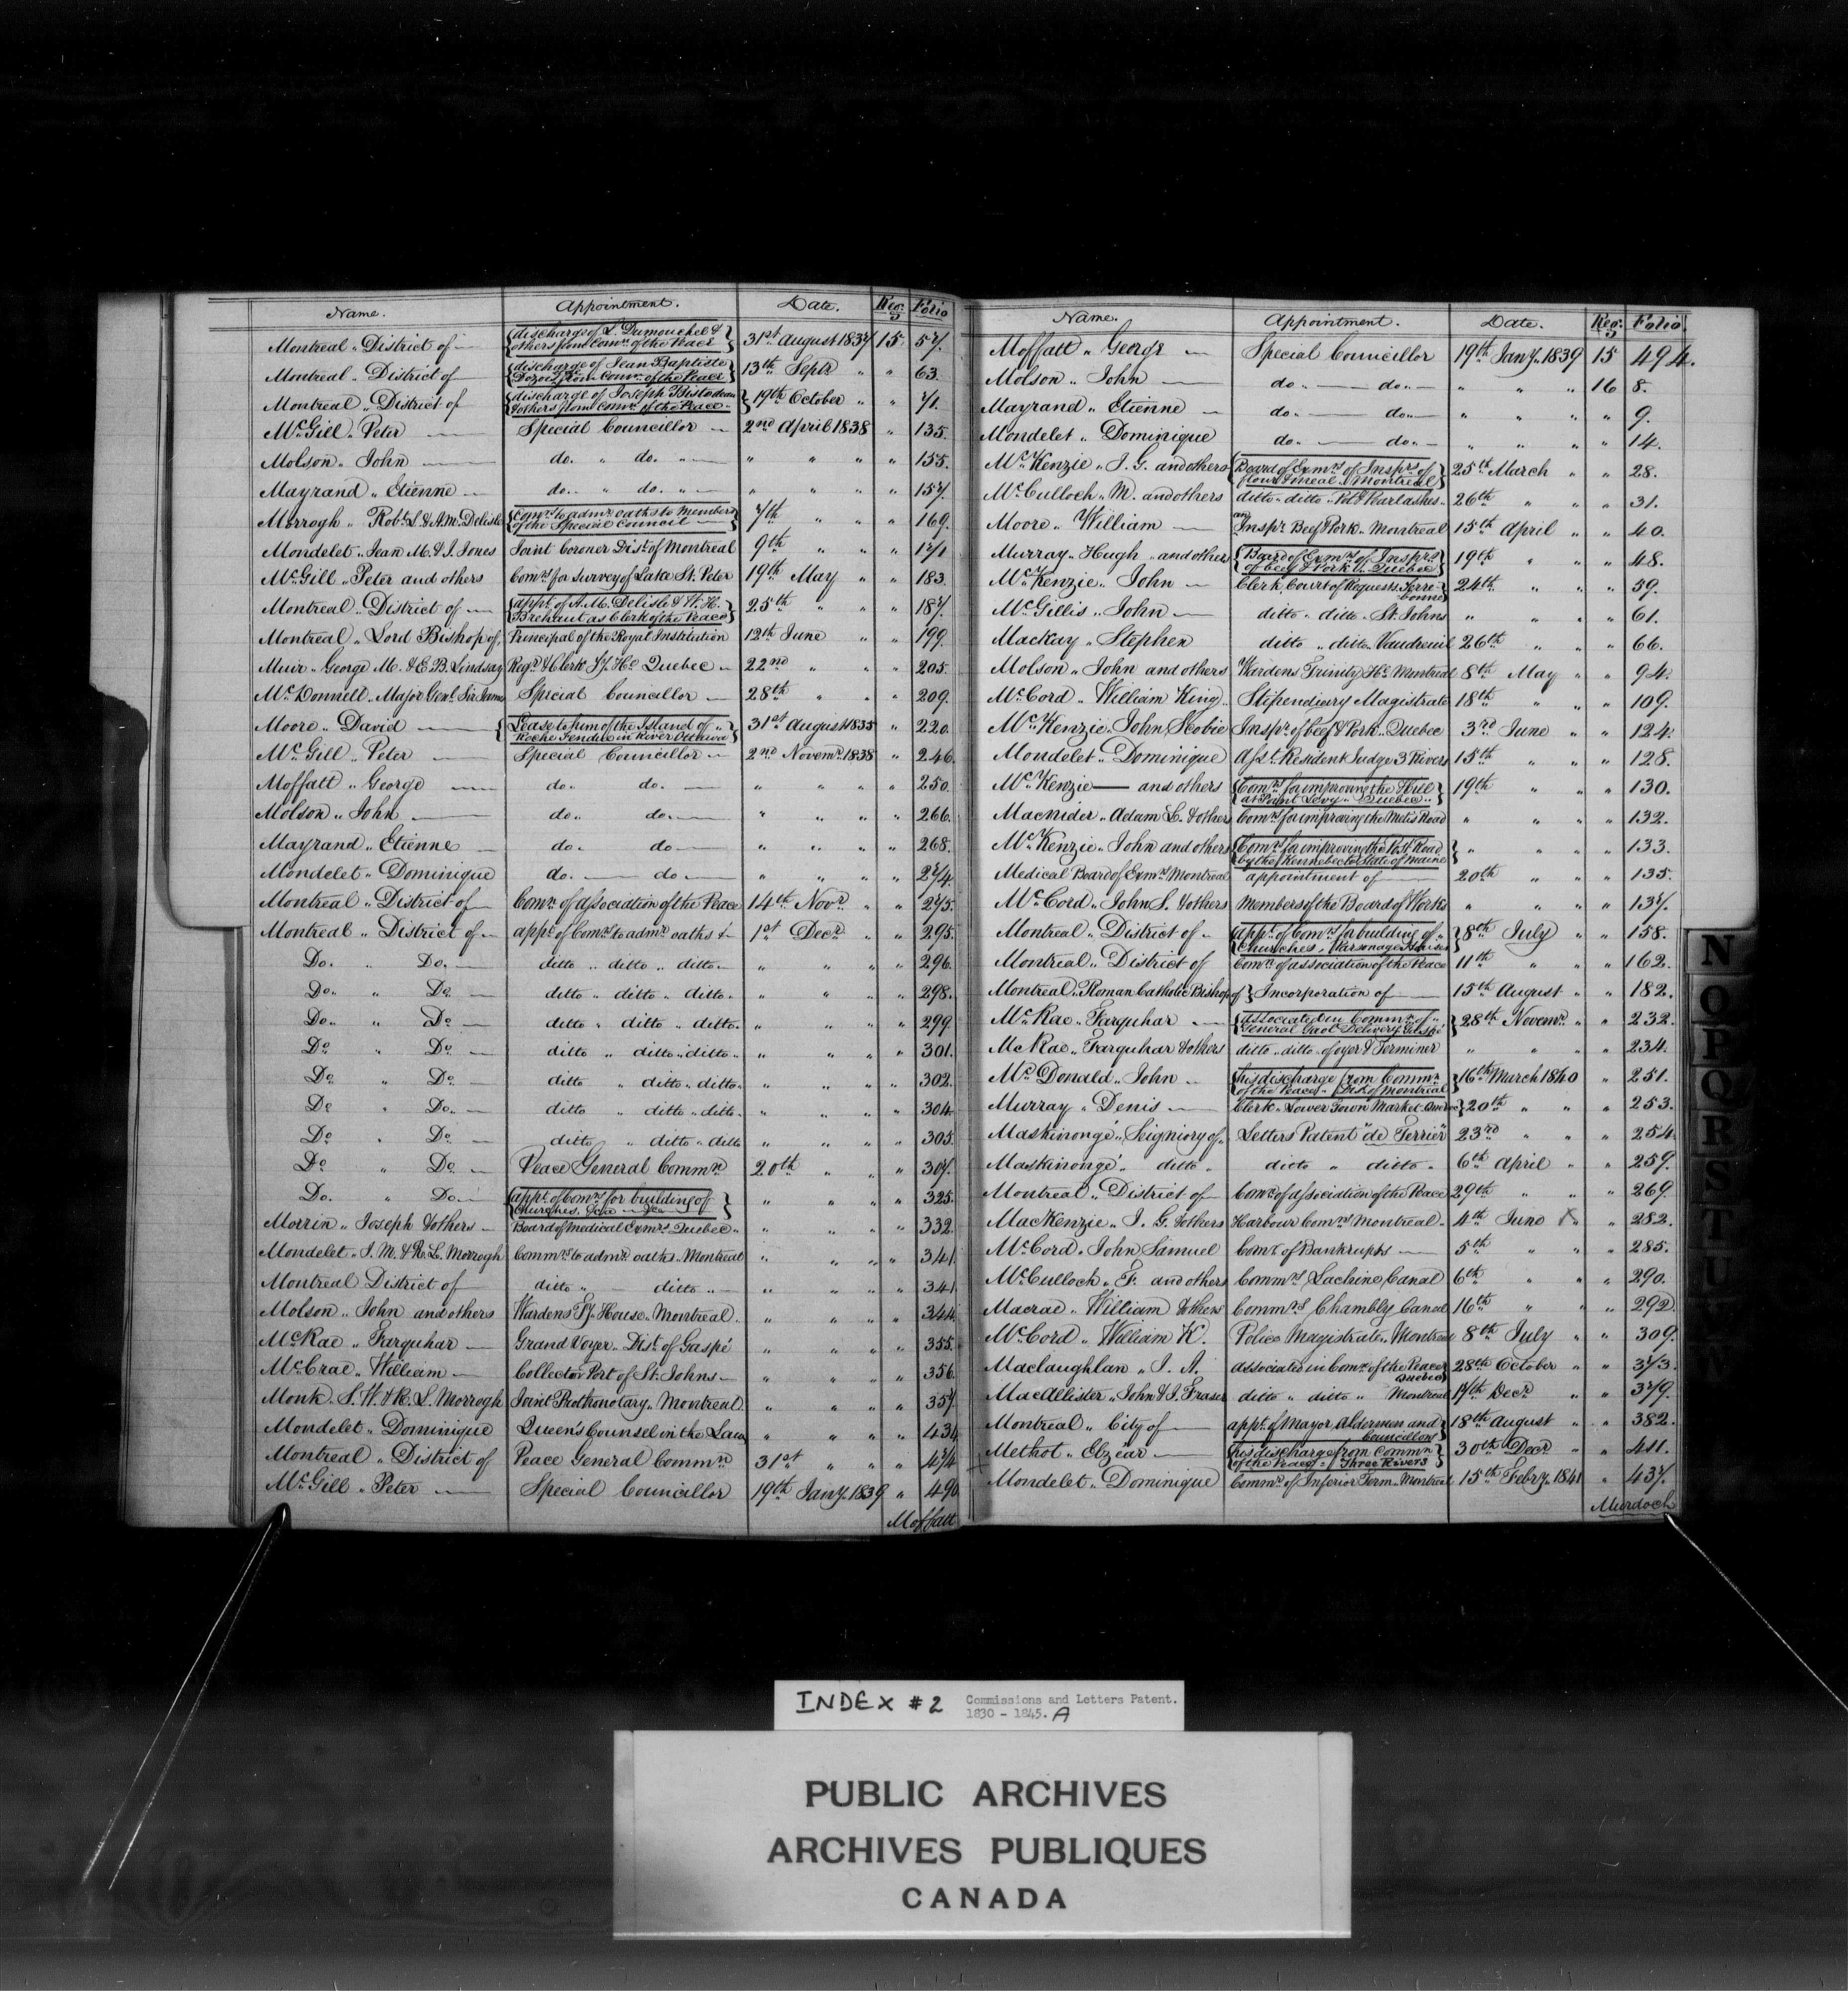 Name. Appointment. Date. Reg. Folio
Montreal „ District of — {discharge of L. Dumouchel & others from Comn. of the Peace} 31st August 1837 15 57.
Montreal „ District of {discharge of Jean Baptiste from Comn. of the Peace} 13th Septr „ „ 63.
Montreal „ District of {discharge of Joseph & others from Comn. of the Peace} 19th October „ „ 71.
McGill „ Peter — Special Councillor — 2nd April 1838 „ 135.
Molson „ John — do. „ do. „ — „ „ „ „ 155.
Mayrand „ Etienne — do. „ do. „ — „ „ „ „ 157.
Morrogh „ Robt. L. & A. M. Delisle {Comn. to admr. oaths to Members of the Special Council —} 7th „ „ „ 169.
Mondelet „ Jean M. & J. Jones Joint Coroner Dist. of Montreal 9th „ „ „ 171
McGill „ Peter and others Comrs for survey of Lake St. Peter 19th May „ „ 183.
Montreal „ District of — {appt. of A. M. Delisle & W. H. Brehaut as Clerk of the Peace} 25th „ „ „ 187.
Montreal „ Lord Bishop of, Principal of the Royal Institution 12th June „ „ 199.
Muir „ George M. & E. B. Lindsay Regr. & Clerk Ty. Hs. Quebec — 22nd „ „ „ 205.
McDonnell „ Major Genl. Sir James Special Councillor — 28th „ „ „ 209.
Moore „ David — {Lease to him of the Island of „ Roche Fendue in River Ottawa} 31st August 1835 „ 220.
McGill „ Peter — Special Councillor — 2nd Novemr. 1838 „ 246.
Moffatt „ George — do. do. — „ „ „ „ 250.
Molson „ John — do. do. — „ „ „ „ 266.
Mayrand „ Etienne — do. do — „ „ „ „ 268.
Mondelet „ Dominique do. — do. — „ „ „ „ 274.
Montreal „ District of — Comn. of association of the Peace 14th Novr. „ „ 275.
Montreal „ District of — appt. of Comrs to admr. oaths &— 1st Decr. „ „ 295.
Do. „ Do. — ditto „ ditto „ ditto — „ „ „ „ 296.
Do. „ Do. — ditto „ ditto „ ditto „ „ „ „ „ 298.
Do. „ Do — ditto „ ditto „ ditto. „ „ „ „ 299.
Do „ Do — ditto „ ditto „ ditto „ „ „ „ „ 301.
Do „ Do — ditto „ ditto „ ditto. „ „ „ „ 302.
Do „ Do. — ditto „ ditto „ ditto. „ „ „ „ 304.
Do „ Do — ditto „ ditto „ ditto „ „ „ „ 305.
Do „ Do — Peace General Commn 20th „ „ „ 307.
Do. „ Do. — {appt. of Comrs for building of churches, &ca — &ca —} „ „ „ „ 325.
Morrin „ Joseph & others — Board of Medical Exmrs. Quebec „ „ „ „ „ 332.
Mondelet „ J. M. & R. L. Morrogh Commrs to admr. oaths „ Montreal „ „ „ „ 341.
Montreal District of — ditto „ — ditto „ — „ „ „ „ 341
Molson „ John and others Wardens Ty. House „ Montreal. „ „ „ „ 344.
McRae „ Farquhar — Grand Voyer „ Dist. of Gaspé „ „ „ „ 355.
McCrae „ William — Collector Port of St. Johns — „ „ „ „ 356.
Monk „ S. W. & R. L. Morrogh Joint Prothonotary „ Montreal. „ „ „ „ 357.
Mondelet „ Dominique Queen's Counsel in the Law „ „ „ „ 434
Montreal „ District of Peace General Commn 31st „ „ „ 474
McGill „ Peter — Special Councillor 19th Jany. 1839 „ 490
Moffatt
Name. Appointment. Date. Reg. Folio.
Moffatt „ George — Special Councillor 19th Jany. 1839 15 494.
Molson „ John — do. — do. — „ „ „ 16 8.
Mayrand „ Etienne — do. — do. — „ „ „ „ 9.
Mondelet „ Dominique do. — do. — „ „ „ „ 14.
McKenzie „ J. G. and others {Board of Exmrs of Insprs of flour & meal „ Montreal} 25th March „ „ 28.
McCulloch „ M. and others ditto „ ditto „ Pot & Pearlashes „ 26th „ „ „ 31.
Moore „ William — an Inspr. Beef & Pork „ Montreal 15th April „ „ 40.
Murray „ Hugh „ and others {Board of Exmrs of Insprs of beef & Pork Quebec} 19th „ „ „ 48.
McKenzie „ John — Clerk, Court of Requests Terrebonne} 24th „ „ „ 59.
McGillis „ John — ditto „ ditto „ St. Johns „ „ „ „ 61.
Mackay „ Stephen ditto „ ditto „ Vaudreuil 26th „ „ „ 66.
Molson „ John and others Wardens Trinity Hs. Montreal 8th May „ „ 94.
McCord „ William King „ Stipendiary Magistrate 18th „ „ „ 109.
McKenzie „ John Scobie Inspr. of beef & Pork „ Quebec 3rd June „ „ 124.
Mondelet „ Dominique Asst. Resident Judge 3 Rivers 15th „ „ „ 128.
McKenzie — and others {Comrs for improving the Hill at Point Levy „ Quebec „} 19th „ „ „ 130.
Macnider „ Adam L. & others Comrs for improving the Metis Road „ „ „ „ 132.
McKenzie „ John and others {Comrs for improving the Post Road by the Kennebec to State of Maine} „ „ „ „ 133.
Medical Board of Exmrs Montreal appointment of — 20th „ „ „ 135.
McCord „ John S. & others Members of the Board of Works „ „ „ „ 137.
Montreal „ District of — {appt. of Comrs for building of „ Churches, Parsonage Houses} 8th July „ „ 158.
Montreal „ District of Comn. of association of the Peace 11th „ „ „ 162.
Montreal „ Roman Catholic Bishop of } Incorporation of — 15th August „ „ 182.
McRae „ Farquhar — {associated in Commn. of „ General Gaol Delivery Gaspé} 28th Novemr. „ „ 232.
McRae „ Farquhar & others ditto „ ditto „ of oyer & Terminer „ „ „ „ 234.
McDonald „ John — {his discharge from Commn of the Peace „ Dist. of Montreal} 16th March 1840 „ 251.
Murray „ Denis — Clerk „ Lower Town Market Quebec} 20th „ „ „ 253.
Maskinongé „ Seigniory of „ Letters Patent "de Terrier" 23rd „ „ „ 254.
Maskinongé „ ditto „ ditto „ ditto „ 6th April „ „ 259.
Montreal „ District of — Comn. of association of the Peace 29th „ „ „ 269.
MacKenzie „ J. G. & others Harbour Comrs Montreal „ 4th June X „ „ 282.
McCord „ John Samuel Comr. of Bankrupts — 5th „ „ „ 285.
McCulloch „ F. and others Commrs Lachine Canal 6th „ „ „ 290.
Macrae „ William & others Commrs Chambly Canal 16th „ „ „ 292.
McCord „ William K. Police Magistrate „ Montreal 8th July „ „ 309.
Maclaughlan „ J. A. associated in Comn. of the Peace Quebec} 28th October „ „ 373.
MacAllister „ John & J. Fraser ditto „ ditto „ Montreal 17th Decr. „ „ 379.
Montreal „ City of — appt. of Mayor Aldermen and Councillors} 18th August „ „ 382.
Methot „ Elzear — {his discharge from Commn of the Peace „ Three Rivers} 30th Decr. „ „ 411.
Mondelet „ Dominique Commr. of Inferior Term „ Montreal 15th Febry. 1841 „ 437.
Murdoch
N
O
P
Q
R
S
T
U
INDEX #2 Commissions and Letters Patent.
1830 - 1845. A
PUBLIC ARCHIVES
ARCHIVES PUBLIQUES
CANADA